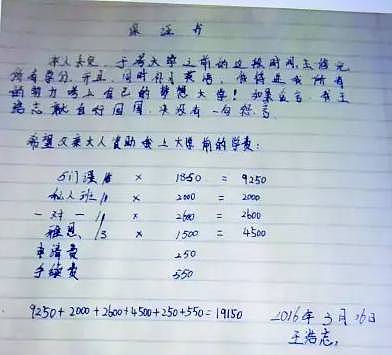 保证书
本人承诺，于考大学之前的这段时间，去修完
所有学分，并且，同时补习英语，我将尽我所有
的努力考上自己的梦想大学！如果失言，我王
浩志就自行回国，决没有一句怨言。
希望父亲大人资助我上大学前的学费：
5门课 × 1850 = 9250
私人班 × 2000 = 2000
一对一 × 2600 = 2600
雅思 /3 × 1500 = 4500
申请费 250
手续费 550
9250+2000+2600+4500+250+550=19150
2016年3月26日
王浩志，